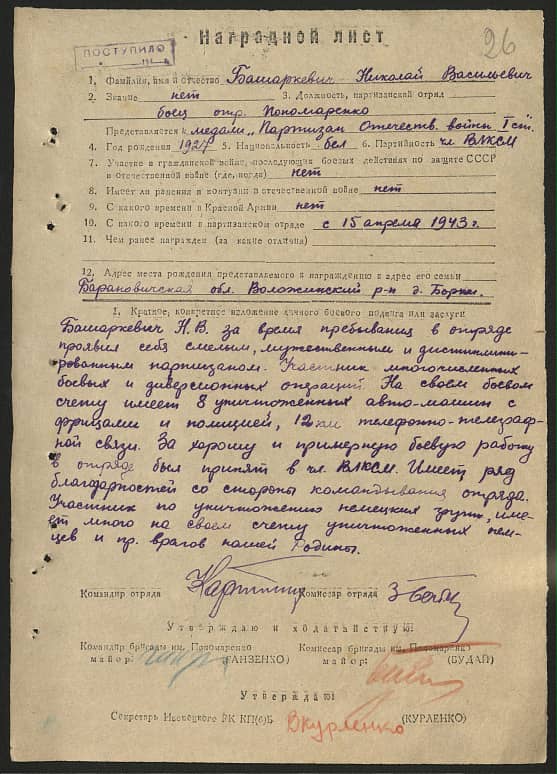 Наградной лист
26
ПОСТУПИЛО
1. Фамилия, имя и отчество Башаркевич Николай Васильевич
2. Звание нет 3. Должность, партизанский отряд
боец отр. Пономаренко
Представляется к медали "Партизан Отечеств. войны I ст."
4. Год рождения 1927 5. Национальность бел 6. Партийность чл ВЛКСМ
7. Участие в гражданской войне, последующих боевых действиях по защите СССР
и отечественной войне (где, когда) нет
8. Имеет ли ранения и контузии в отечественной войне нет
9. С какого времени в Красной Армии нет
10. С какого времени в партизанском отряде с 15 апреля 1943 г.
11. Чем ранее награжден (за какие отличия)
12. Адрес места рождения представляемого к награждению и адрес его семьи
Барановичская обл. Воложинский р-н д. Борки.
I. Краткое, конкретное изложение личного боевого подвига или заслуги
Башаркевич Н.В. за время пребывания в отряде
проявил себя смелым, мужественным и дисциплини-
рованным партизаном. Участник многочисленных
боевых и диверсионных операций. На своем боевом
счету имеет 8 уничтоженных авто-машин с
фрицами и полицией, 12 км телефонно-телеграф-
ной связи. За хорошую и примерную боевую работу
в отряде был принят в чл. ВЛКСМ. Имеет ряд
благодарностей со стороны командывания отряда.
Участник по уничтожению немецких групп, име-
ет много на своем счету уничтоженных нем-
цев и пр. врагов нашей Родины.
Командир отряда Комиссар отряда
Утверждаю и ходатайствую:
Командир бригады им. Пономаренко Комиссар бригады им. Пономаренко
майор: (ГАНЗЕНКО) майор: (БУДАЙ)
Утверждаю:
Секретарь Ивенецкого РК КП(б)Б Вкурленко (КУРЛЕНКО)